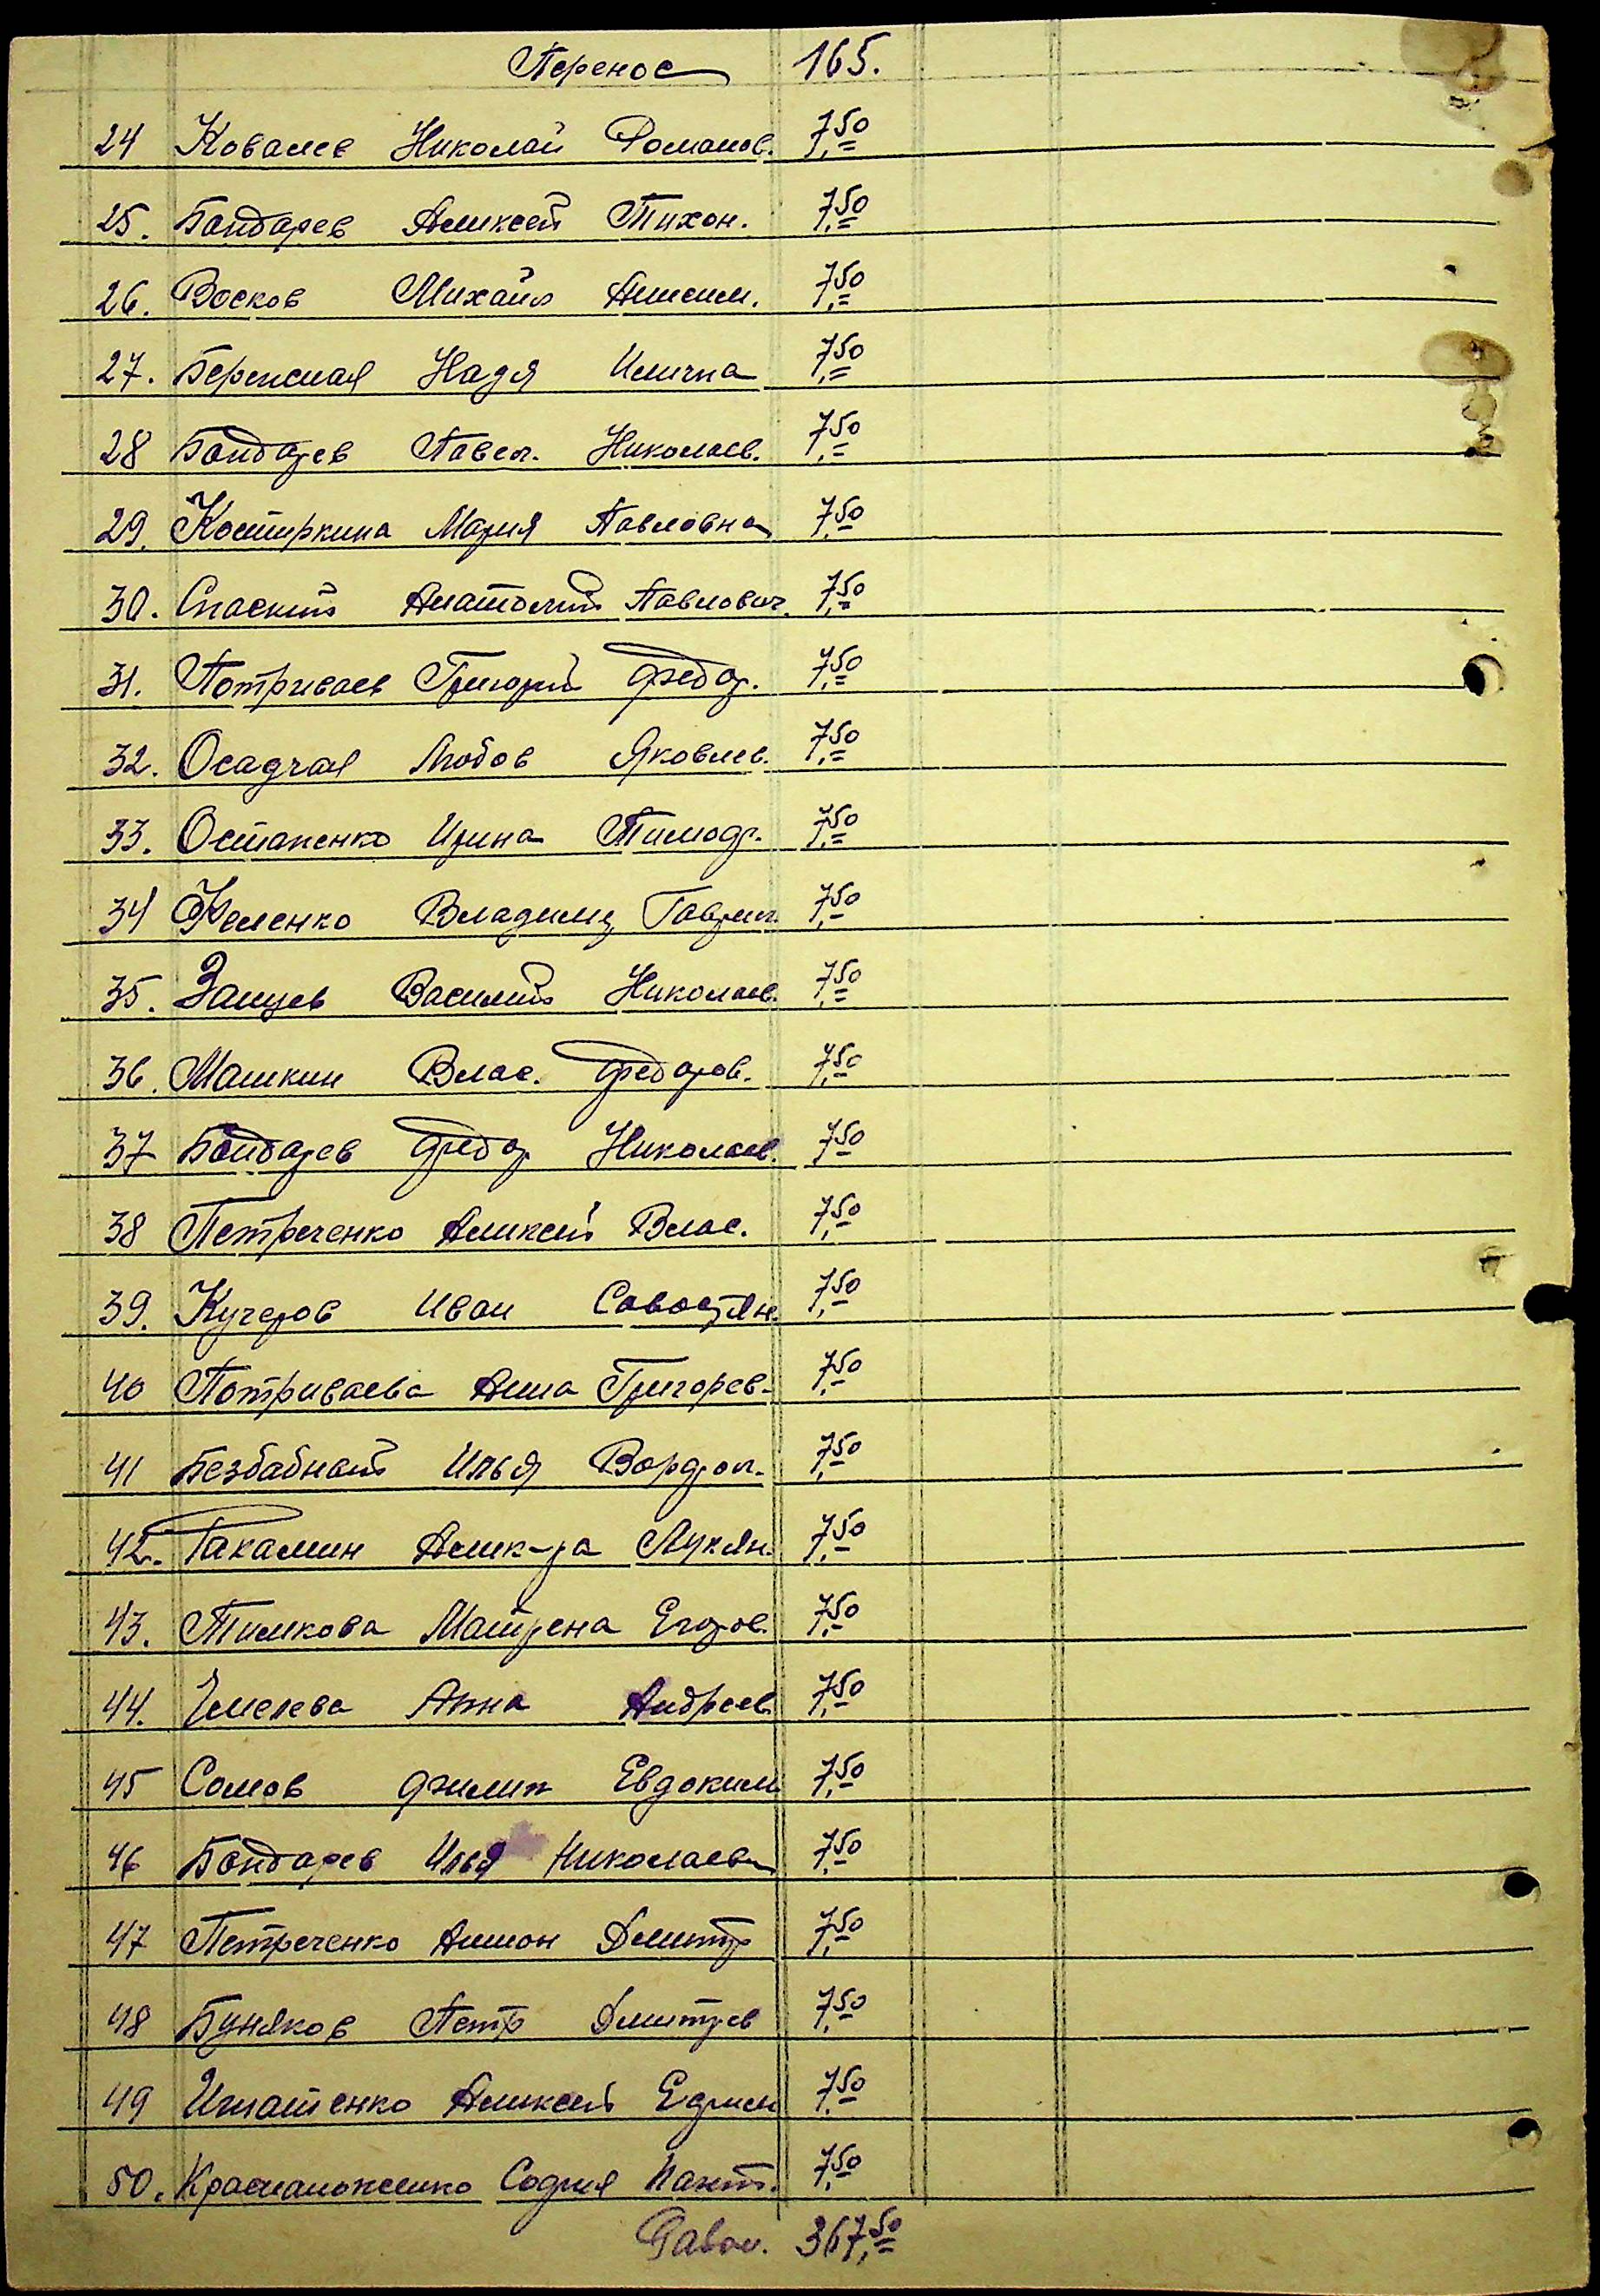 Перенос 165.
24 Ковалев Николай Романов. 7,50
25. Бондарев Алексей Тихон. 7,50
26. Восков Михаил Анисим. 7,50
27. Бережная Надя Илична 7,50
28 Бондарев Павел. Николаев. 7,50
29. Костиркина Мария Павловна 7,50
30. Спаский Анатолий Павлович. 7,50
31. Потриваев Григорий Федор. 7,50
32. Осадчая Любов Яковлев. 7,50
33. Остапенко Ирина Тимоф. 7,50
34 Владимир Гаврил. 7,50
35. Зайцев Василий Николаев. 7,50
36. Машкин Влас. Федоров. 7,50
37 Бондарев Федор Николаев. 7,50
38 Петреченко Алексей Влас. 7,50
39. Кучеров Иван Савостян. 7,50
40 Потриваева Анна Григорев. 7,50
41 Безбабный Илья 7,50
42. Такалин Алек-ра Лукян. 7,50
43. Тимкова Матрена Егоров. 7,50
44. Анна Андреев. 7,50
45 Сомов Филип Евдоким 7,50
46 Бондарев Илья Николаев 7,50
47 Петреченко Антон Дмитр 7,50
48 Буняков Петр Дмитрев 7,50
49 Игнатенко Алексей Ефим 7,50
50. София Пант. 7,50
367,50